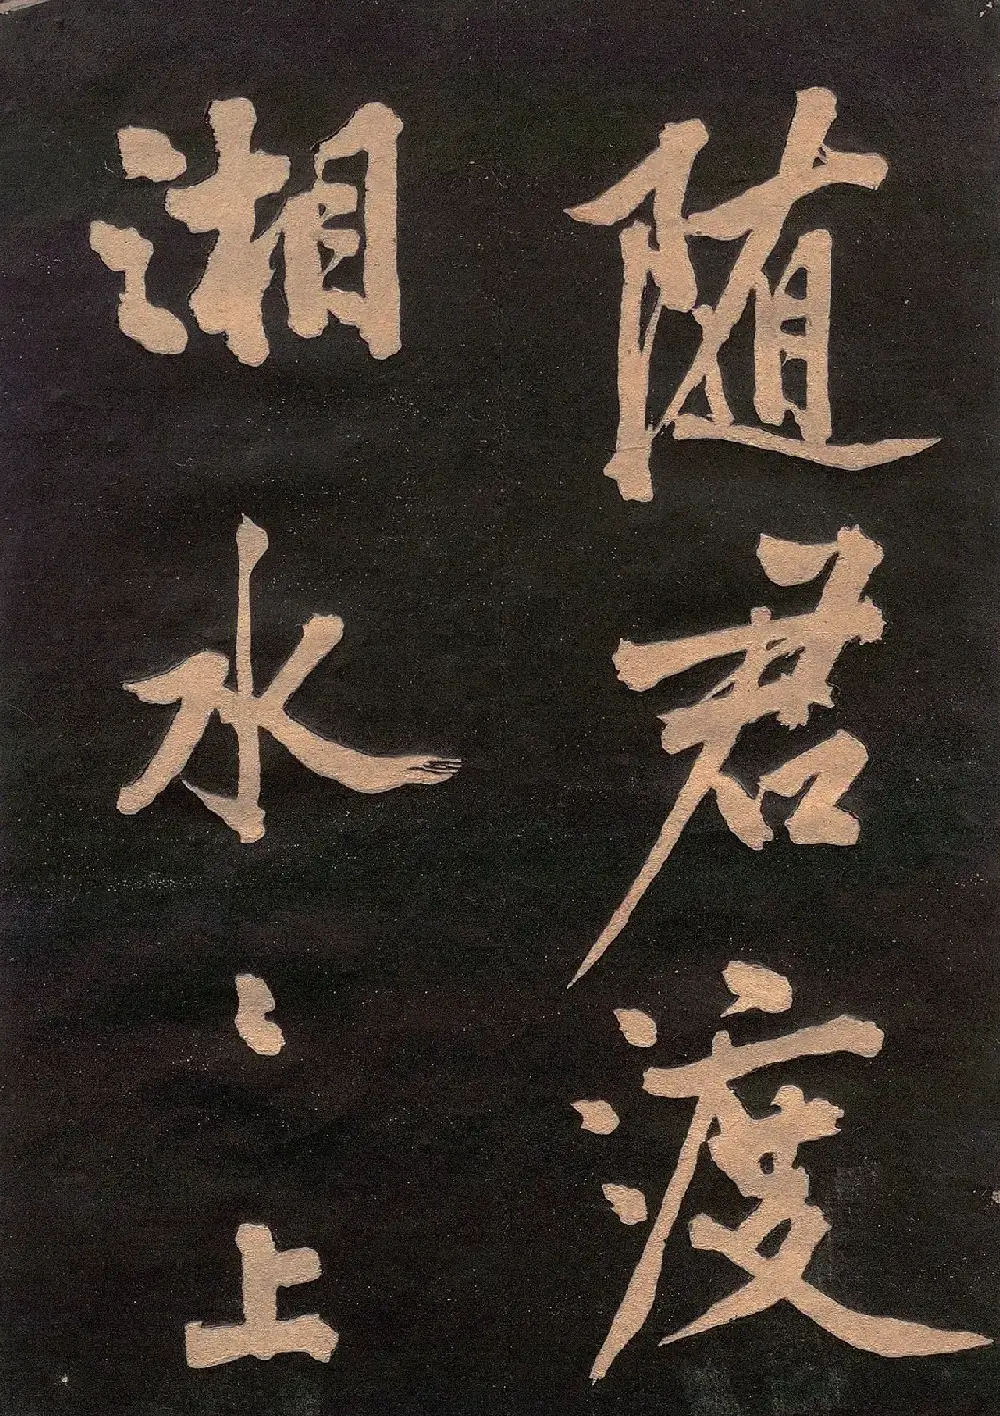 随君渡
湘水〻上